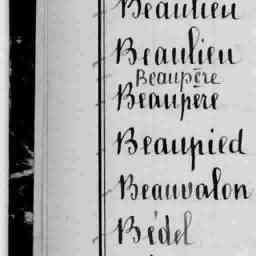 Beaulieu
Beaulieu
Beaupère
Beaupère
Beaupied
Beauvalon
Bédel